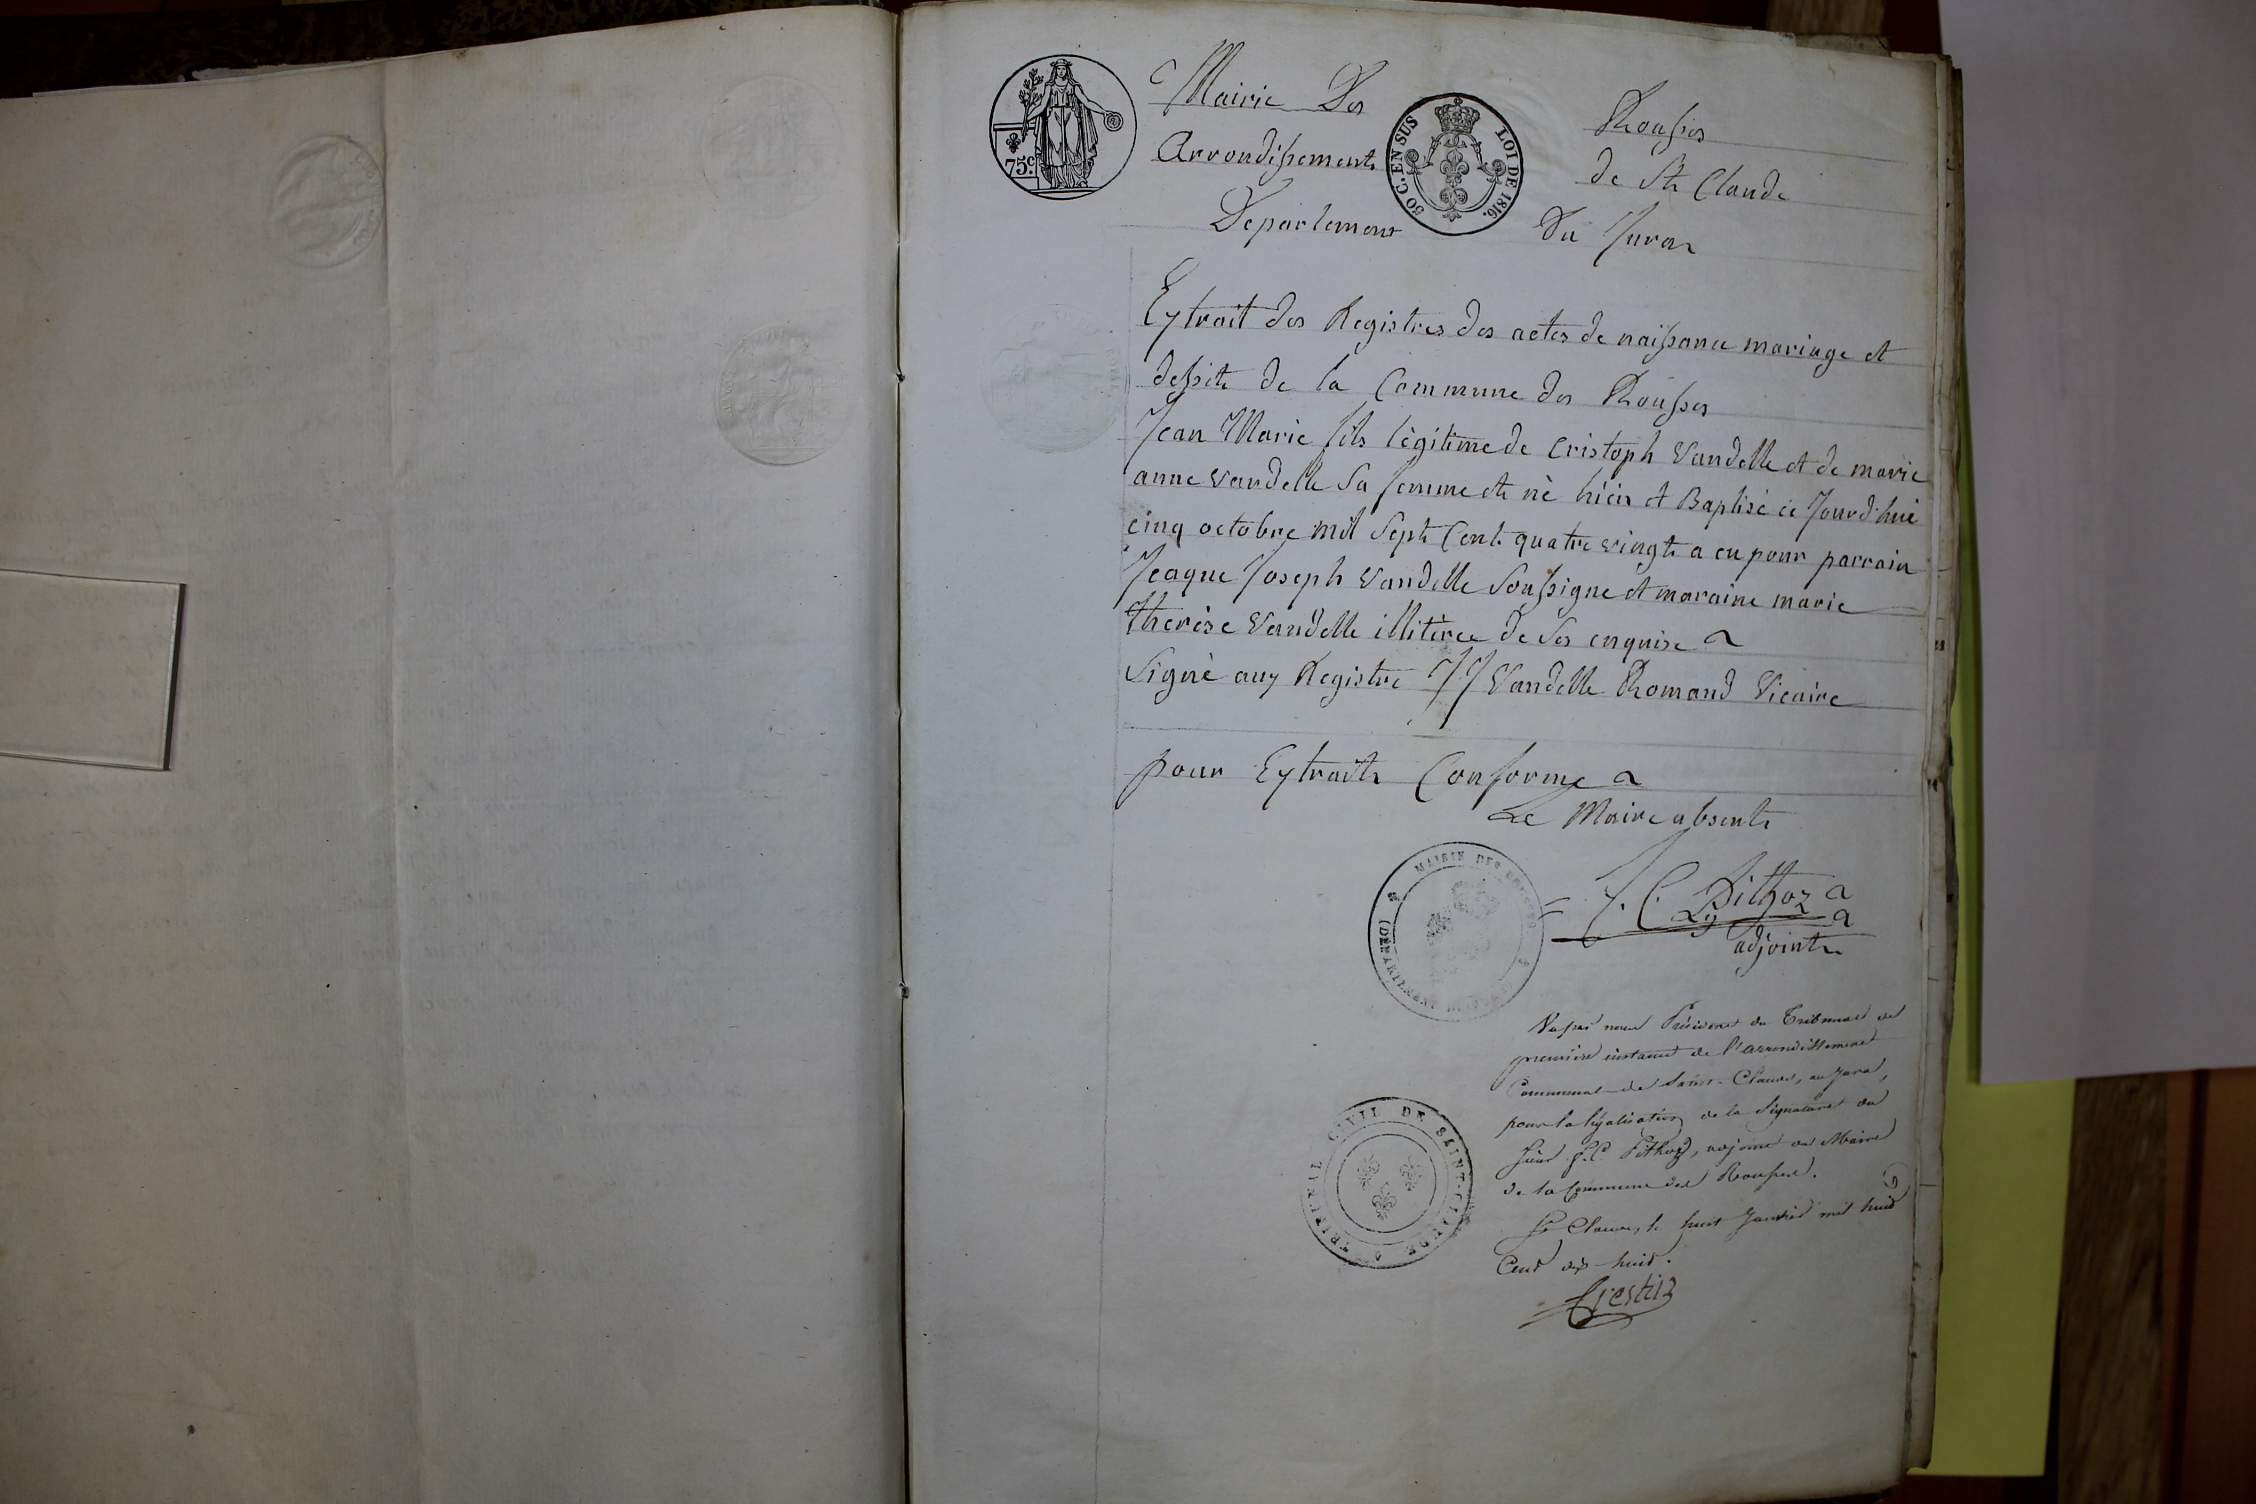 Mairie Des Rousses
Arrondissement de St Claude
Departement Du Jura
75c.
50 C. EN SUS LOI DE 1816.
Extrait des Registres des actes de naissance mariage et
dessite de la Commune des Rousses
Jean Marie fils lègitime de Cristoph Vandelle et de marie
anne Vandelle Sa femme et nè hièr et Baptisé ce Jourd'hui
cinq octobre mil Sept Cent quatre vingt a eu pour parrain
Jeaque Joseph Vandelle Soussigne et maraine marie
therèse Vandelle illitèree de Ses enquise
Signè aux Registre J J Vandelle Romand Vicaire
pour Extrait Conforme
Le Maire absent
J. C. Pithoz
adjoint
MAIRIE DES ROUSSES
(DEPARTEMENT
Vu par nous Président du Tribunal de
première instance de l'arrondissement
Communal de Saint-Claude, au Jura,
pour la légalisation de la Signature du
Sieur J. C. Pithoz, adjoint au Maire
de la Commune des Rousses.
St Claude, le huit Janvier mil huit
Cent dix huit.
Crestin
TRIBUNAL CIVIL DE SAINT-CLAUDE